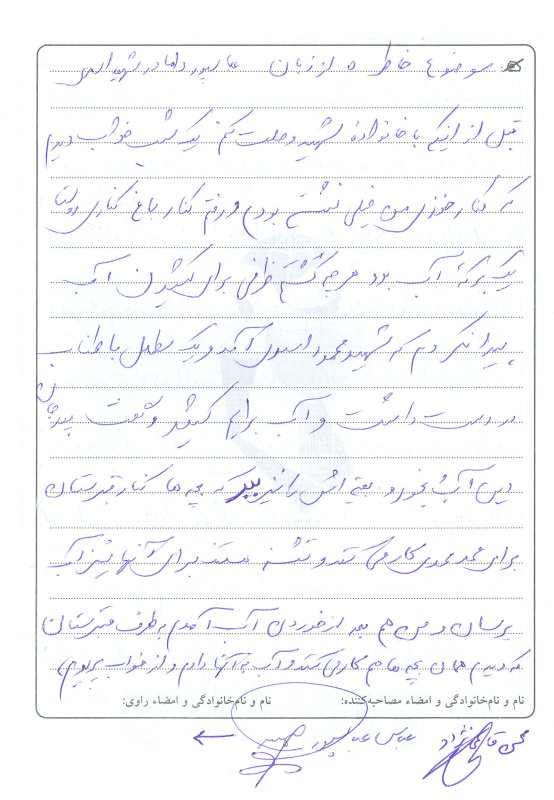 موضوع خاطره از زبان عباسپور داماد شهید
قبل از اینکه با خانوادهٔ شهید وصلت کنم یک شب خواب دیدم
که کنار من خیلی تشنه بودم و رفتم کنار باغ کناری
یک برکهٔ آب بود هرچه گشتم ظرفی برای کشیدن آب
پیدا نکردم که شهید محمود آمد و یک سطل با طناب
در دست داشت و آب برایم کشید و گفت
این آب را بخور و بقیه اش را نیز ببر که بچه ها کنار قبرستان
برای محمد کار می کنند و تشنه هستند برای آنها نیز آب
برسان و من هم بعد از خوردن آب آمدم به طرف قبرستان
که دیدم همان بچه ها هم کار می کنند و آب به آنها دادم و از خواب پریدم
نام و نام‌خانوادگی و امضاء مصاحبه‌کننده: نام و نام‌خانوادگی و امضاء راوی:
عباس عباسپور